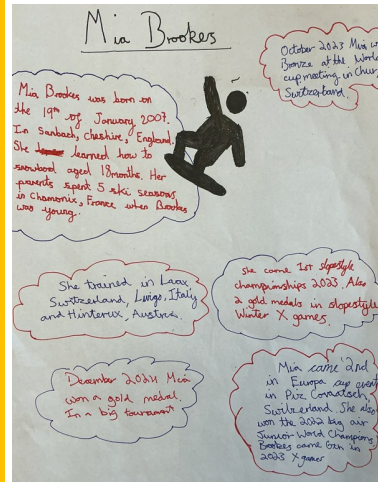 Mia Brookes
October 2023 Mia w
Bronze at the World
cup meeting in Chur
Switzerland.
Mia Brookes was born on
the 19th of January 2007.
In Sanbach, Cheshire, England.
She learned how to
snowboard aged 18months. Her
parents spent 5 ski seasons
in Chamonix, France when Brookes
was young.
She trained in Laax
Switzerland, Livigo, Italy
and Hinterux, Austria.
She came 1st slopestyle
championships 2023. Also
2 gold medals in slopestyle
Winter X games.
December 2024 Mia
won a gold medal.
In a big tournament
Mia came 2nd
in Europa cup event
in Piz Corvatsch,
Switzerland. She also
won the 2022 big air
Junior World Champions
Brookes came 6th in
2023 X games